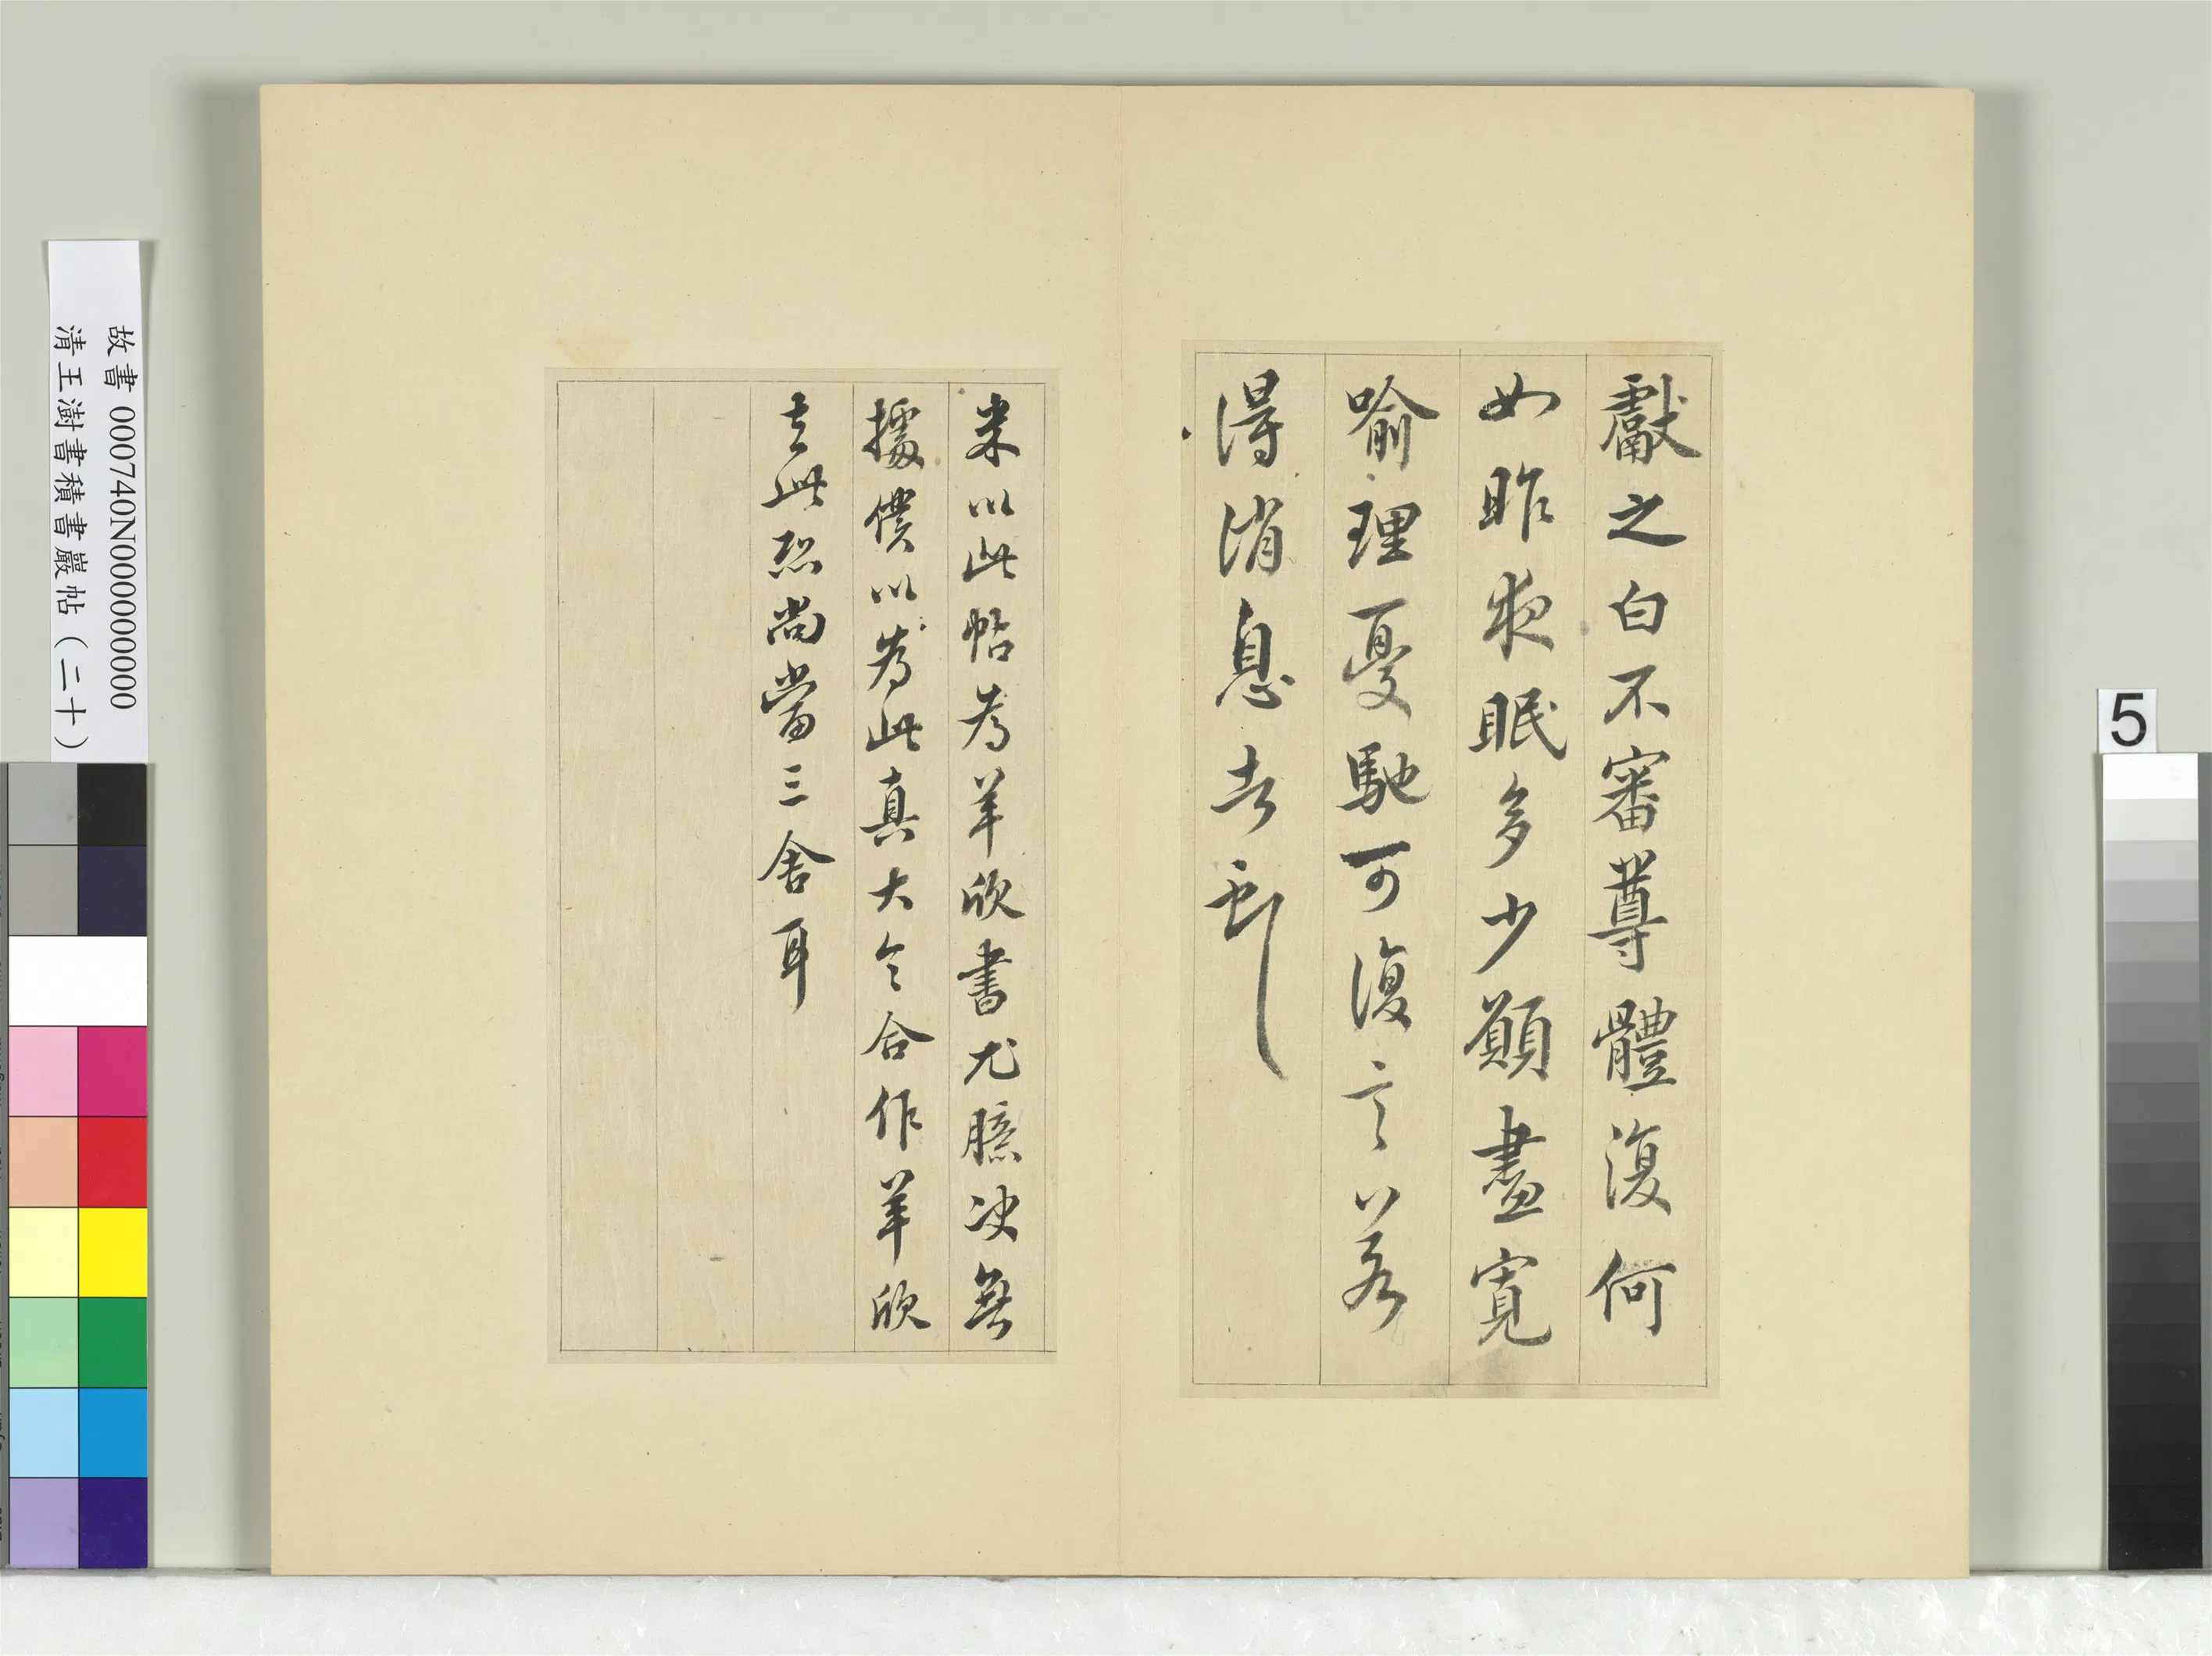 獻之白不審尊體復何
如昨夜眠多少願盡寬
喻理憂馳可復言以若
得消息告
米以此帖為羊欣書尤臆決無
據僕以為此真大令合作羊欣
去此恐尚當三舍耳
故書 000740N000000000
清王澍書積書巖帖(二十)
5